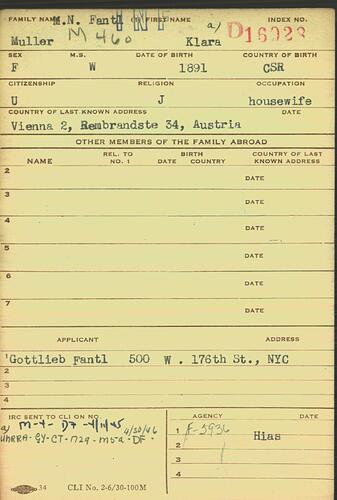 FAMILY NAME M.N. Fantl OR FIRST NAME a) INDEX NO.
INF
Muller M 460 Klara D16923
SEX M.S. DATE OF BIRTH COUNTRY OF BIRTH
F W 1891 CSR
CITIZENSHIP RELIGION OCCUPATION
U J housewife
COUNTRY OF LAST KNOWN ADDRESS DATE
Vienna 2, Rembrandste 34, Austria
OTHER MEMBERS OF THE FAMILY ABROAD
NAME REL. TO NO. 1 BIRTH DATE COUNTRY COUNTRY OF LAST KNOWN ADDRESS
2 DATE
3 DATE
4 DATE
5 DATE
6 DATE
7 DATE
APPLICANT ADDRESS
1 Gottlieb Fantl 500 W. 176th St., NYC
2
3
4
IRC SENT TO CLI ON NO. AGENCY DATE
a) M-4- D7 -4/11/45 4/30/46 1 F-5936 Hias
UNRRA-GY-CT-1729-M52-DF. 2
3
4
34 CLI No. 2-6/30-100M